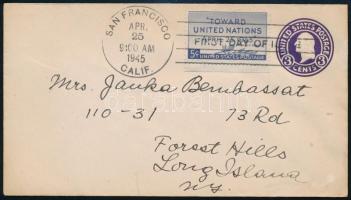 SAN FRANCISCO
APR.
25
9:00 AM
1945
CALIF.
"TOWARD
UNITED NATIONS
FIRST DAY OF ISSUE
5¢ UNITED STATES POSTAGE
UNITED STATES POSTAGE
3 3
CENTS
Mrs. Janka Bembassat
110-31 73 Rd
Forest Hills
Long Island
N.Y.